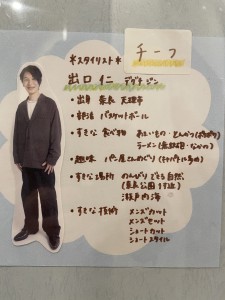 *スタイリスト*
チーフ
出口 仁 デグチ ジン
・出身 奈良 天理市
・部活 バスケットボール
・すきな食べ物 あまいもの・とんかつ
ラーメン
・趣味 パン屋さんめぐり
・すきな場所 のんびりできる自然
(奈良公園
瀬戸内海
・すきな技術 メンズカット
メンズセット
ショートカット
ショートスタイル